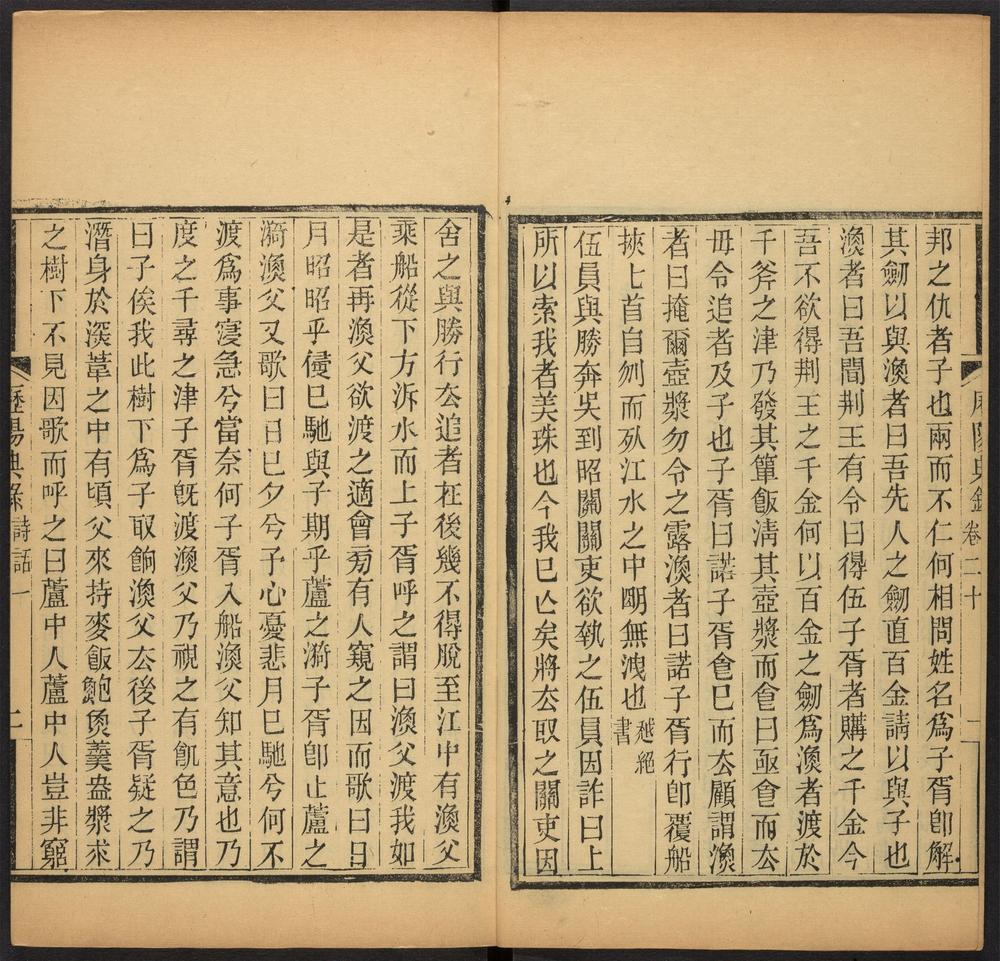 歷陽典錄 卷二十
邦之仇者子也兩而不仁何相問姓名爲子胥卽解
其劒以與漁者曰吾先人之劒直百金請以與子也
漁者曰吾聞荆王有令曰得伍子胥者購之千金今
吾不欲得荆王之千金何以百金之劒爲漁者渡於
千斧之津乃發其簞飯淸其壺漿而食曰亟食而去
毋令追者及子也子胥曰諾子胥食已而去顧謂漁
者曰掩爾壺漿勿令之露漁者曰諾子胥行卽覆船
挾匕首自刎而死江水之中明無洩也越絕
書
伍員與勝奔吳到昭關關吏欲執之伍員因詐曰上
所以索我者美珠也今我已亾矣將去取之關吏因
舍之與勝行去追者在後幾不得脫至江中有漁父
乘船從下方泝水而上子胥呼之謂曰漁父渡我如
是者再漁父欲渡之適會旁有人窺之因而歌曰日
月昭昭乎侵已馳與子期乎蘆之漪子胥卽止蘆之
漪漁父又歌曰日已夕兮予心憂悲月已馳兮何不
渡爲事寖急兮當奈何子胥入船漁父知其意也乃
度之千尋之津子胥旣渡漁父乃視之有飢色乃謂
曰子俟我此樹下爲子取餉漁父去後子胥疑之乃
潛身於深葦之中有頃父來持麥飯鮑魚羹盎漿求
之樹下不見因歌而呼之曰蘆中人蘆中人豈非窮
歷陽典錄 詩話一 二